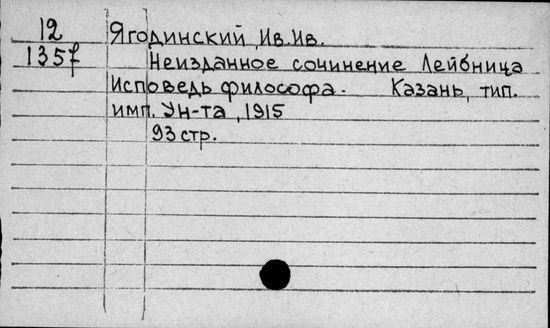 12 Ягодинский, Ив. Ив.
1357 Неизданное сочинение Лейбница
Исповедь философа. Казань, тип.
имп. Ун-та, 1915
93 стр.